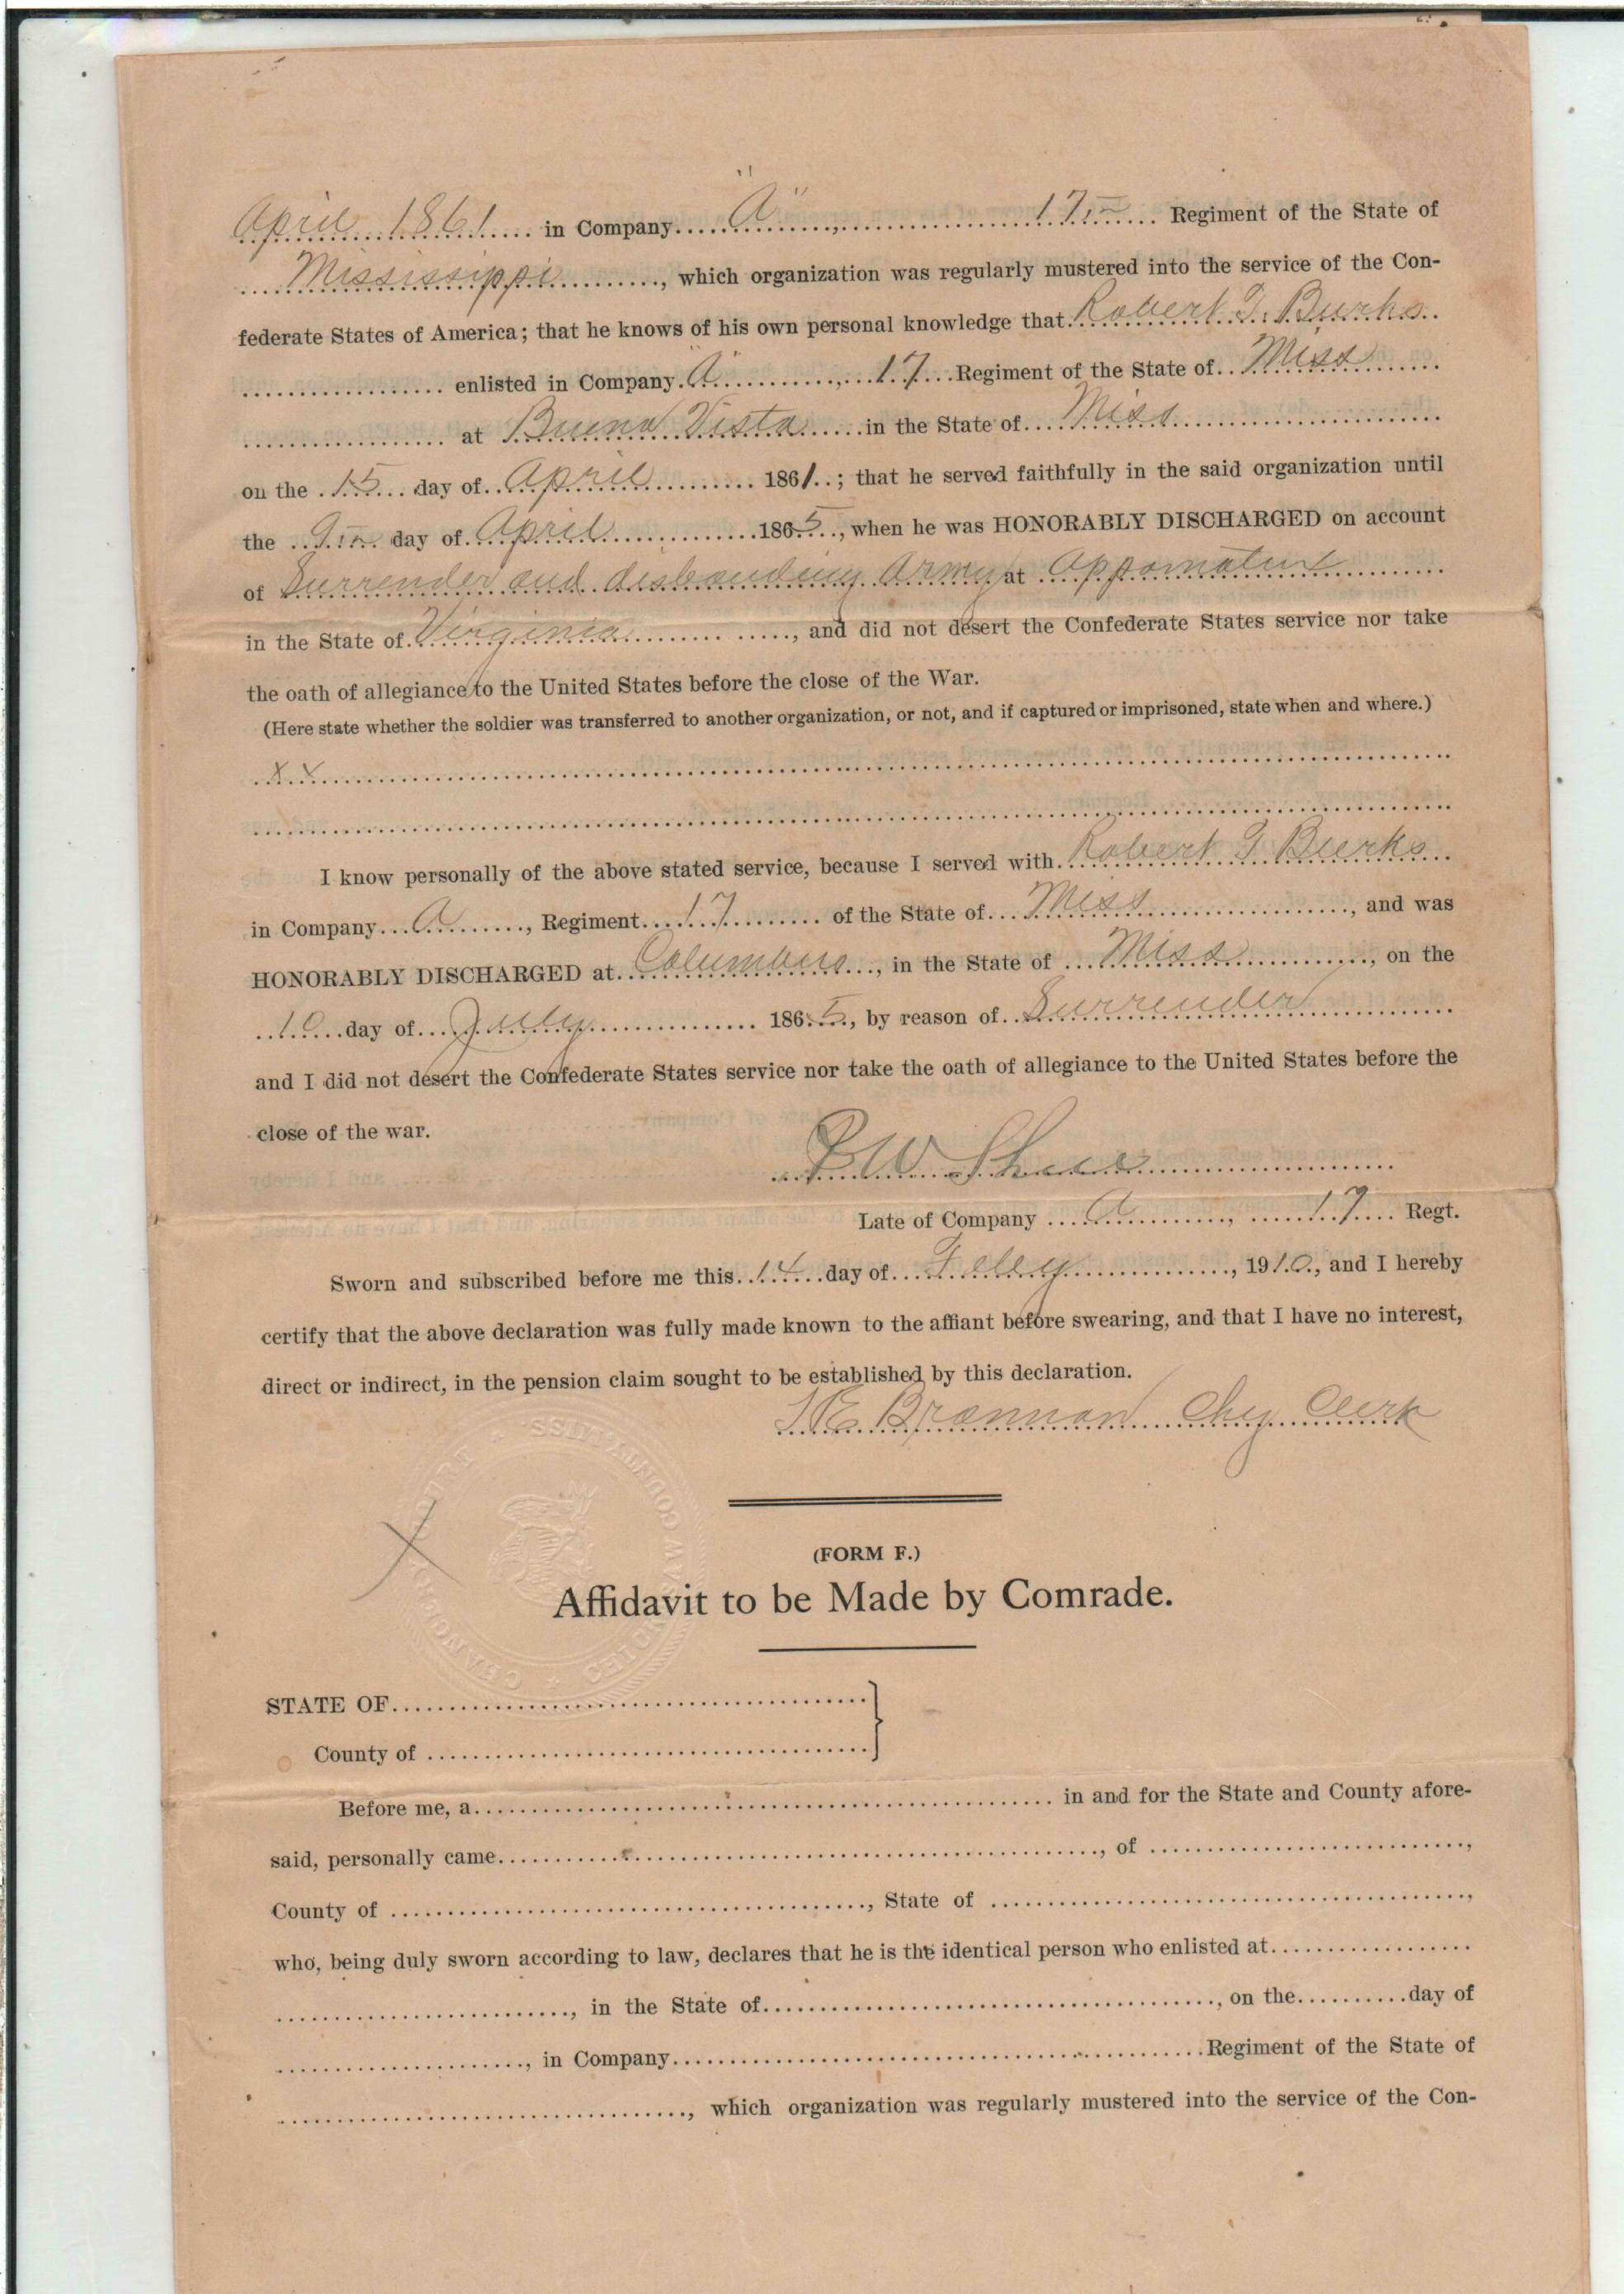 April 1861 in Company "A", 17th Regiment of the State of
Mississippi, which organization was regularly mustered into the service of the Con-
federate States of America; that he knows of his own personal knowledge that Robert T. Burks
enlisted in Company A, 17 Regiment of the State of Miss
at Buena Vista in the State of Miss
on the 15 day of April 1861; that he served faithfully in the said organization until
the 9th day of April 1865, when he was HONORABLY DISCHARGED on account
of Surrender and disbanding Army at Appomatux
in the State of Virginia, and did not desert the Confederate States service nor take
the oath of allegiance to the United States before the close of the War.
(Here state whether the soldier was transferred to another organization, or not, and if captured or imprisoned, state when and where.)
x x
I know personally of the above stated service, because I served with Robert T Burks
in Company A, Regiment 17 of the State of Miss, and was
HONORABLY DISCHARGED at Columbus, in the State of Miss, on the
10 day of July 1865, by reason of Surrender
and I did not desert the Confederate States service nor take the oath of allegiance to the United States before the
close of the war.
W
Late of Company A, 17 Regt.
Sworn and subscribed before me this 14 day of, 1910, and I hereby
certify that the above declaration was fully made known to the affiant before swearing, and that I have no interest,
direct or indirect, in the pension claim sought to be established by this declaration.
Brannon Chy Clerk
(FORM F.)
Affidavit to be Made by Comrade.
STATE OF
County of
Before me, a in and for the State and County afore-
said, personally came, of,
County of, State of,
who, being duly sworn according to law, declares that he is the identical person who enlisted at
, in the State of, on the day of
, in Company Regiment of the State of
, which organization was regularly mustered into the service of the Con-